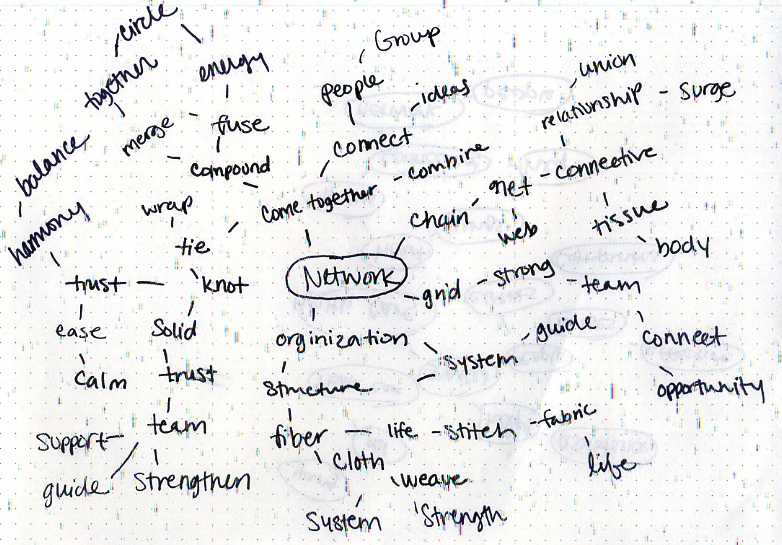 circle
together
energy
Group
people
ideas
union
relationship - surge
merge
fuse
connect
balance
compound
combine
net - connective
harmony
wrap
come together
chain
web
tissue
body
tie
trust
knot
Network
grid - strong - team
ease
Solid
orginization
guide
connect
calm
trust
structure
system
opportunity
support
team
fiber - life - stitch - fabric
life
guide
Strengthen
cloth
weave
System
Strength